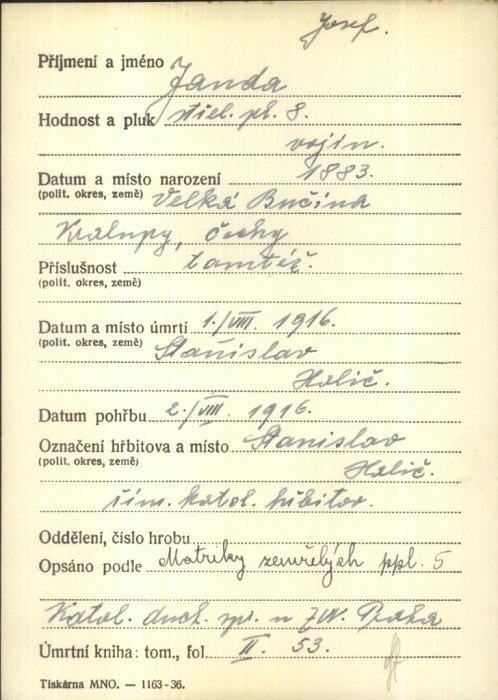 Josef.
Příjmení a jméno Janda
Hodnost a pluk střel. pl. 8.
vojín.
Datum a místo narození 1883.
(polit. okres, země) Velká Bučina
Kralupy, Čechy
Příslušnost tamtéž.
(polit. okres, země)
Datum a místo úmrtí 1./VIII. 1916.
(polit. okres, země) Stanislav
Halič.
Datum pohřbu 2./VIII. 1916.
Označení hřbitova a místo Stanislav
(polit. okres, země) Halič.
řím. katol. hřbitov.
Oddělení, číslo hrobu
Opsáno podle Matriky zemřelých ppl. 5
Katol. duch. spr. u ZV. Praha
Úmrtní kniha: tom., fol. II. 53.
Tiskárna MNO. — 1163-36.